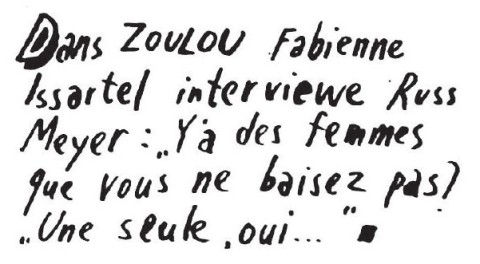 Dans ZOULOU Fabienne
Issartel interviewe Russ
Meyer : „Y'a des femmes
que vous ne baisez pas?
„Une seule, oui..."■